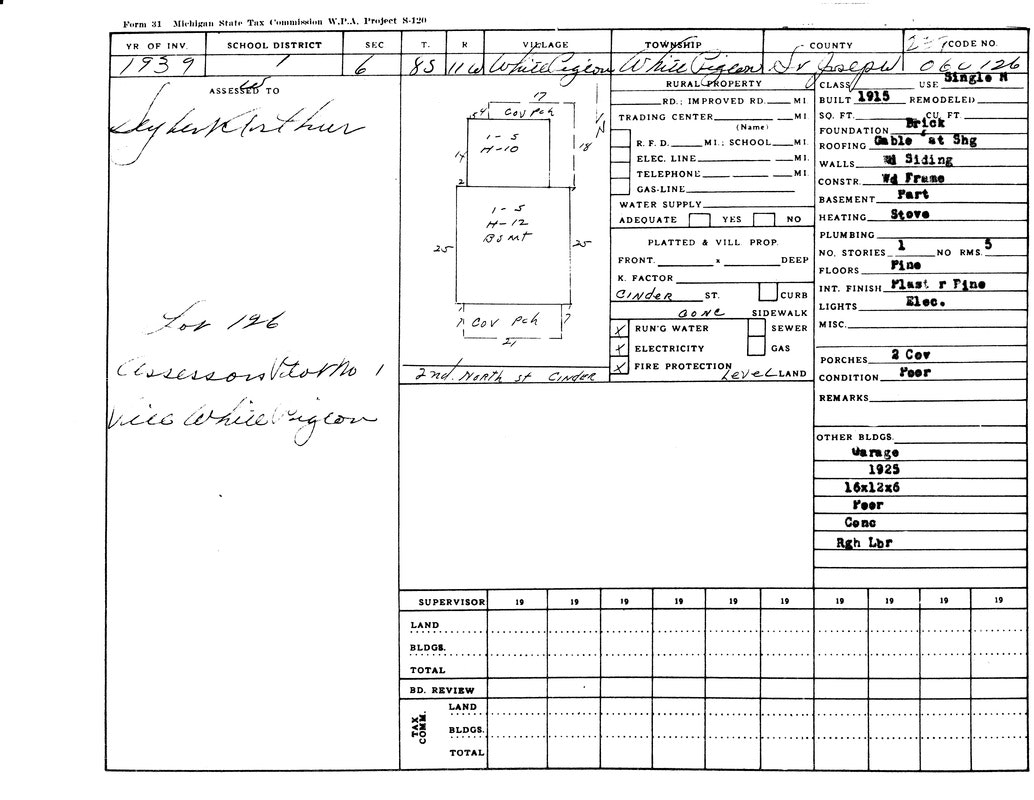 Form 31 Michigan State Tax Commission W.P.A. Project S-120
YR OF INV. SCHOOL DISTRICT SEC T. R VILLAGE TOWNSHIP COUNTY CODE NO.
1939 1 6 8S 11W White Pigeon White Pigeon St Joseph 06C 126
ASSESSED TO
Arthur
Lot 126
Assessors Plat No 1
Vill White Pigeon
17
4 Cov Pch
1-5
H-10
14
18
N
2
1-5
H-12
BSMT
25 25
7 Cov Pch 7
21
2nd. North St Cinder
RURAL PROPERTY
RD.; IMPROVED RD. MI.
TRADING CENTER MI.
(Name)
R. F. D. MI.; SCHOOL MI.
ELEC. LINE MI.
TELEPHONE MI.
GAS-LINE
WATER SUPPLY
ADEQUATE YES NO
PLATTED & VILL. PROP.
FRONT. x DEEP
K. FACTOR
Cinder ST. CURB
SIDEWALK
X RUN'G WATER SEWER
X ELECTRICITY GAS
X FIRE PROTECTION
Level LAND
CLASS USE Single
BUILT 1915 REMODELED
SQ. FT. CU. FT.
FOUNDATION Brick
ROOFING Gable at Shg
WALLS Wd Siding
CONSTR. Wd Frame
BASEMENT Part
HEATING Stove
PLUMBING
NO. STORIES 1 NO RMS. 5
FLOORS Pine
INT. FINISH Plast r Pine
LIGHTS Elec.
MISC.
PORCHES 2 Cov
CONDITION Poor
REMARKS
OTHER BLDGS.
Garage
1925
16x12x6
Poor
Conc
Rgh Lbr
SUPERVISOR 19 19 19 19 19 19 19 19 19 19
LAND
BLDGS.
TOTAL
BD. REVIEW
TAX COMM.
LAND
BLDGS.
TOTAL